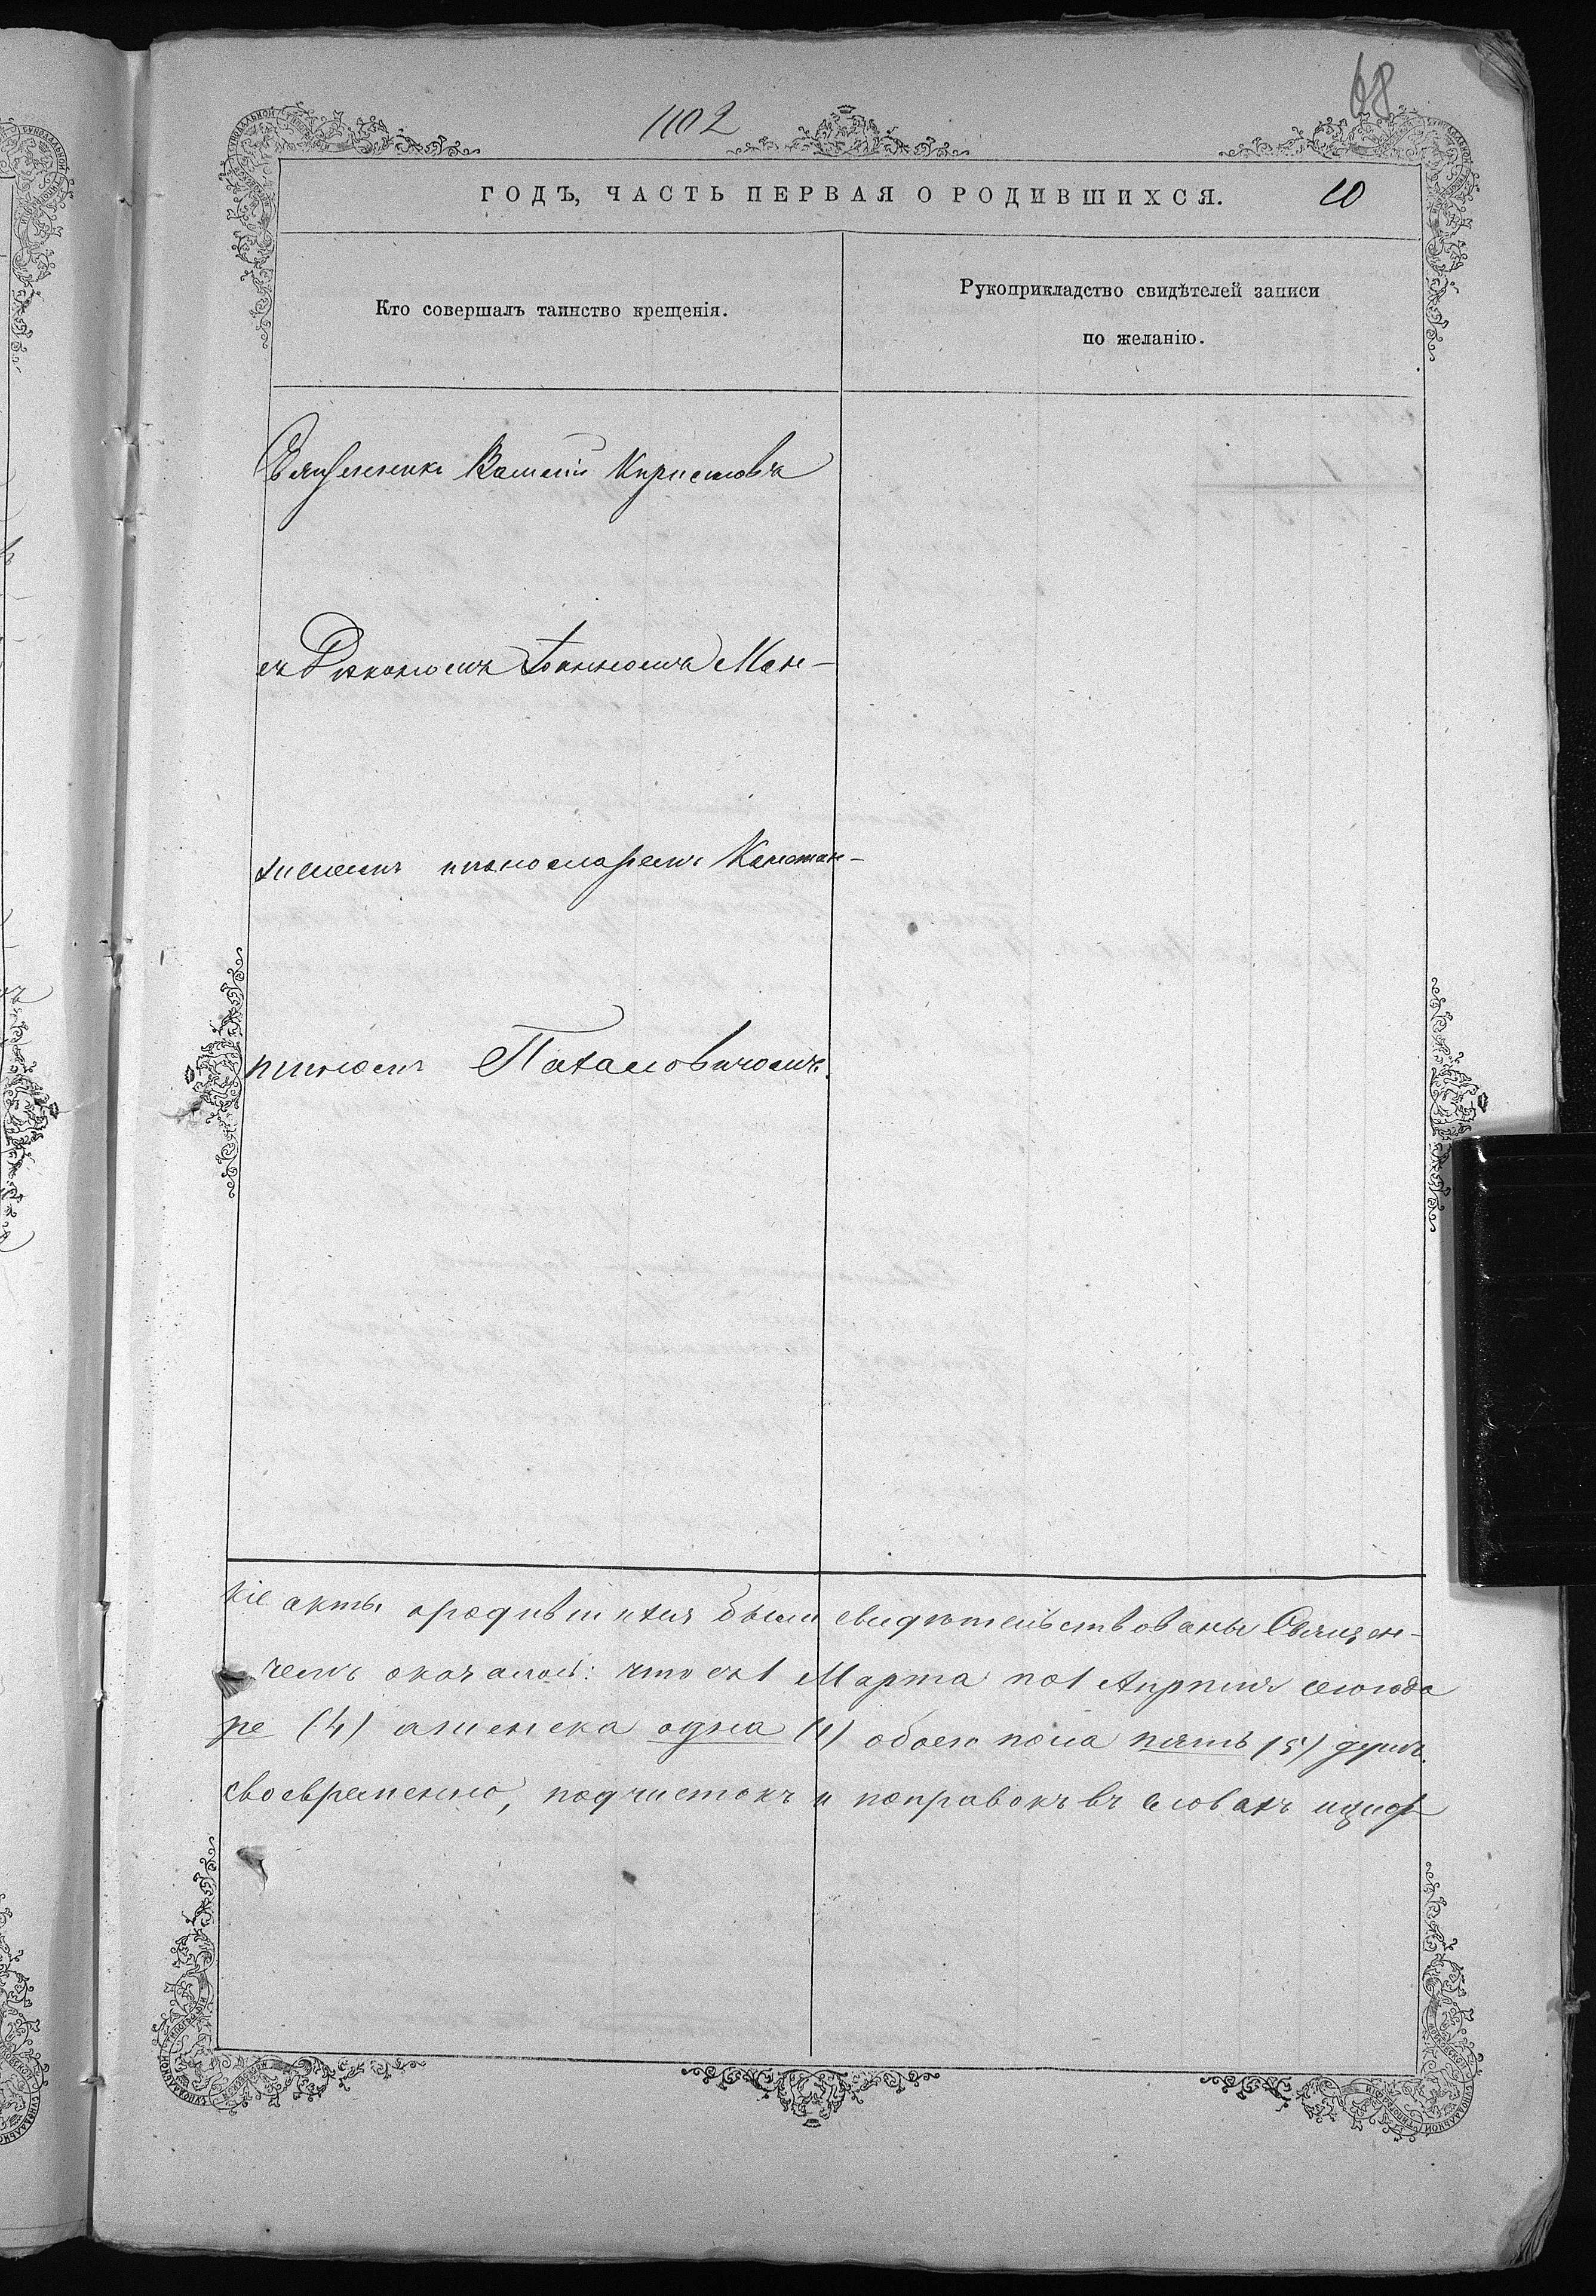 68
1102
ГОДЪ, ЧАСТЬ ПЕРВАЯ О РОДИВШИХСЯ.
10
Кто совершалъ таинство крещенія.
Рукоприкладство свидѣтелей записи
по желанію.
Священникъ Василій Кириловъ
съ Діакономъ Іоанномъ Мак-
симомъ и пономаремъ Констан-
тиномъ Пахамовичомъ.
кіе акты о родившихся были свидѣтельствованы Священ-
чемъ оказалось: что съ 1 Марта по 1 Апрѣля сего года
ре (4) а женска одна (1) обоего пола пять (5) душъ.
своевременно, подчистокъ и поправокъ въ словахъ и циф-